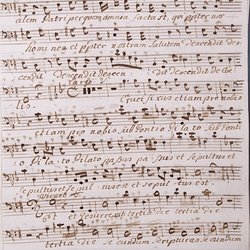 alem Patri per quem omnia facta st. qui ppter nos
homines et ppter nostram Salutem descendit des
cendit Descendit descen dit descendit de Coe
Cruci fixus etiam pro nobis
etiam pro nobis sub Pontio Pilato sub Ponti
o Pilato Pilato passus passus et Sepultus est
Sepultus est sepul tus est et sepul tus est.
et resurrexit tertia die tertia die
tertia die secundum scripturas secundum